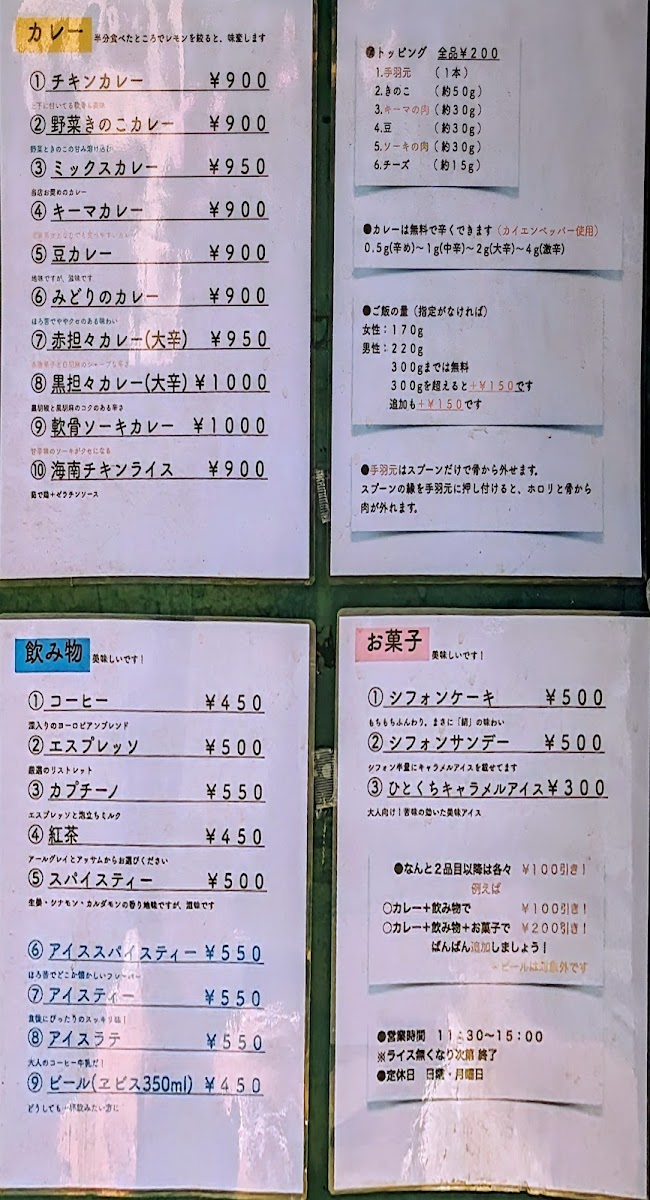 カレー 半分食べたところでレモンを絞ると、味変します
① チキンカレー ¥900
② 野菜きのこカレー ¥900
野菜ときのこの甘み溶け込む
③ ミックスカレー ¥950
当店お奨めのカレー
④ キーマカレー ¥900
⑤ 豆カレー ¥900
地味ですが、滋味です
⑥ みどりのカレー ¥900
ほろ苦でややクセのある味わい
⑦ 赤担々カレー(大辛) ¥950
⑧ 黒担々カレー(大辛) ¥1000
黒胡椒と黒胡麻のコクのある辛さ
⑨ 軟骨ソーキカレー ¥1000
甘辛味のソーキがクセになる
⑩ 海南チキンライス ¥900
茹で鶏+ゼラチンソース
トッピング 全品¥200
1.手羽元 (1本)
2.きのこ (約50g)
3.キーマの肉(約30g)
4.豆 (約30g)
5.ソーキの肉(約30g)
6.チーズ (約15g)
●カレーは無料で辛くできます(カイエンペッパー使用)
0.5g(辛め)〜1g(中辛)〜2g(大辛)〜4g(激辛)
●ご飯の量(指定がなければ)
女性:170g
男性:220g
300gまでは無料
300gを超えると+¥150です
追加も+¥150です
●手羽元はスプーンだけで骨から外せます。
スプーンの縁を手羽元に押し付けると、ホロリと骨から
肉が外れます。
飲み物 美味しいです!
① コーヒー ¥450
深入りのヨーロピアンブレンド
② エスプレッソ ¥500
厳選のリストレット
③ カプチーノ ¥550
エスプレッソと泡立ちミルク
④ 紅茶 ¥450
アールグレイとアッサムからお選びください
⑤ スパイスティー ¥500
生姜・シナモン・カルダモンの香り地味ですが、滋味です
⑥ アイススパイスティー ¥550
ほろ苦でどこか懐かしいフレーバー
⑦ アイスティー ¥550
食後にぴったりのスッキリ味!
⑧ アイスラテ ¥550
大人のコーヒー牛乳だ!
⑨ ビール(ヱビス350ml) ¥450
どうしても一杯飲みたい方に
お菓子 美味しいです!
① シフォンケーキ ¥500
もちもちふんわり、まさに「絹」の味わい
② シフォンサンデー ¥500
シフォン半量にキャラメルアイスを載せてます
③ ひとくちキャラメルアイス ¥300
大人向け!苦味の効いた美味アイス
●なんと2品目以降は各々 ¥100引き!
例えば
○カレー+飲み物で ¥100引き!
○カレー+飲み物+お菓子で ¥200引き!
ばんばん追加しましょう!
ビールは対象外です
●営業時間 11:30〜15:00
※ライス無くなり次第 終了
●定休日 日曜・月曜日